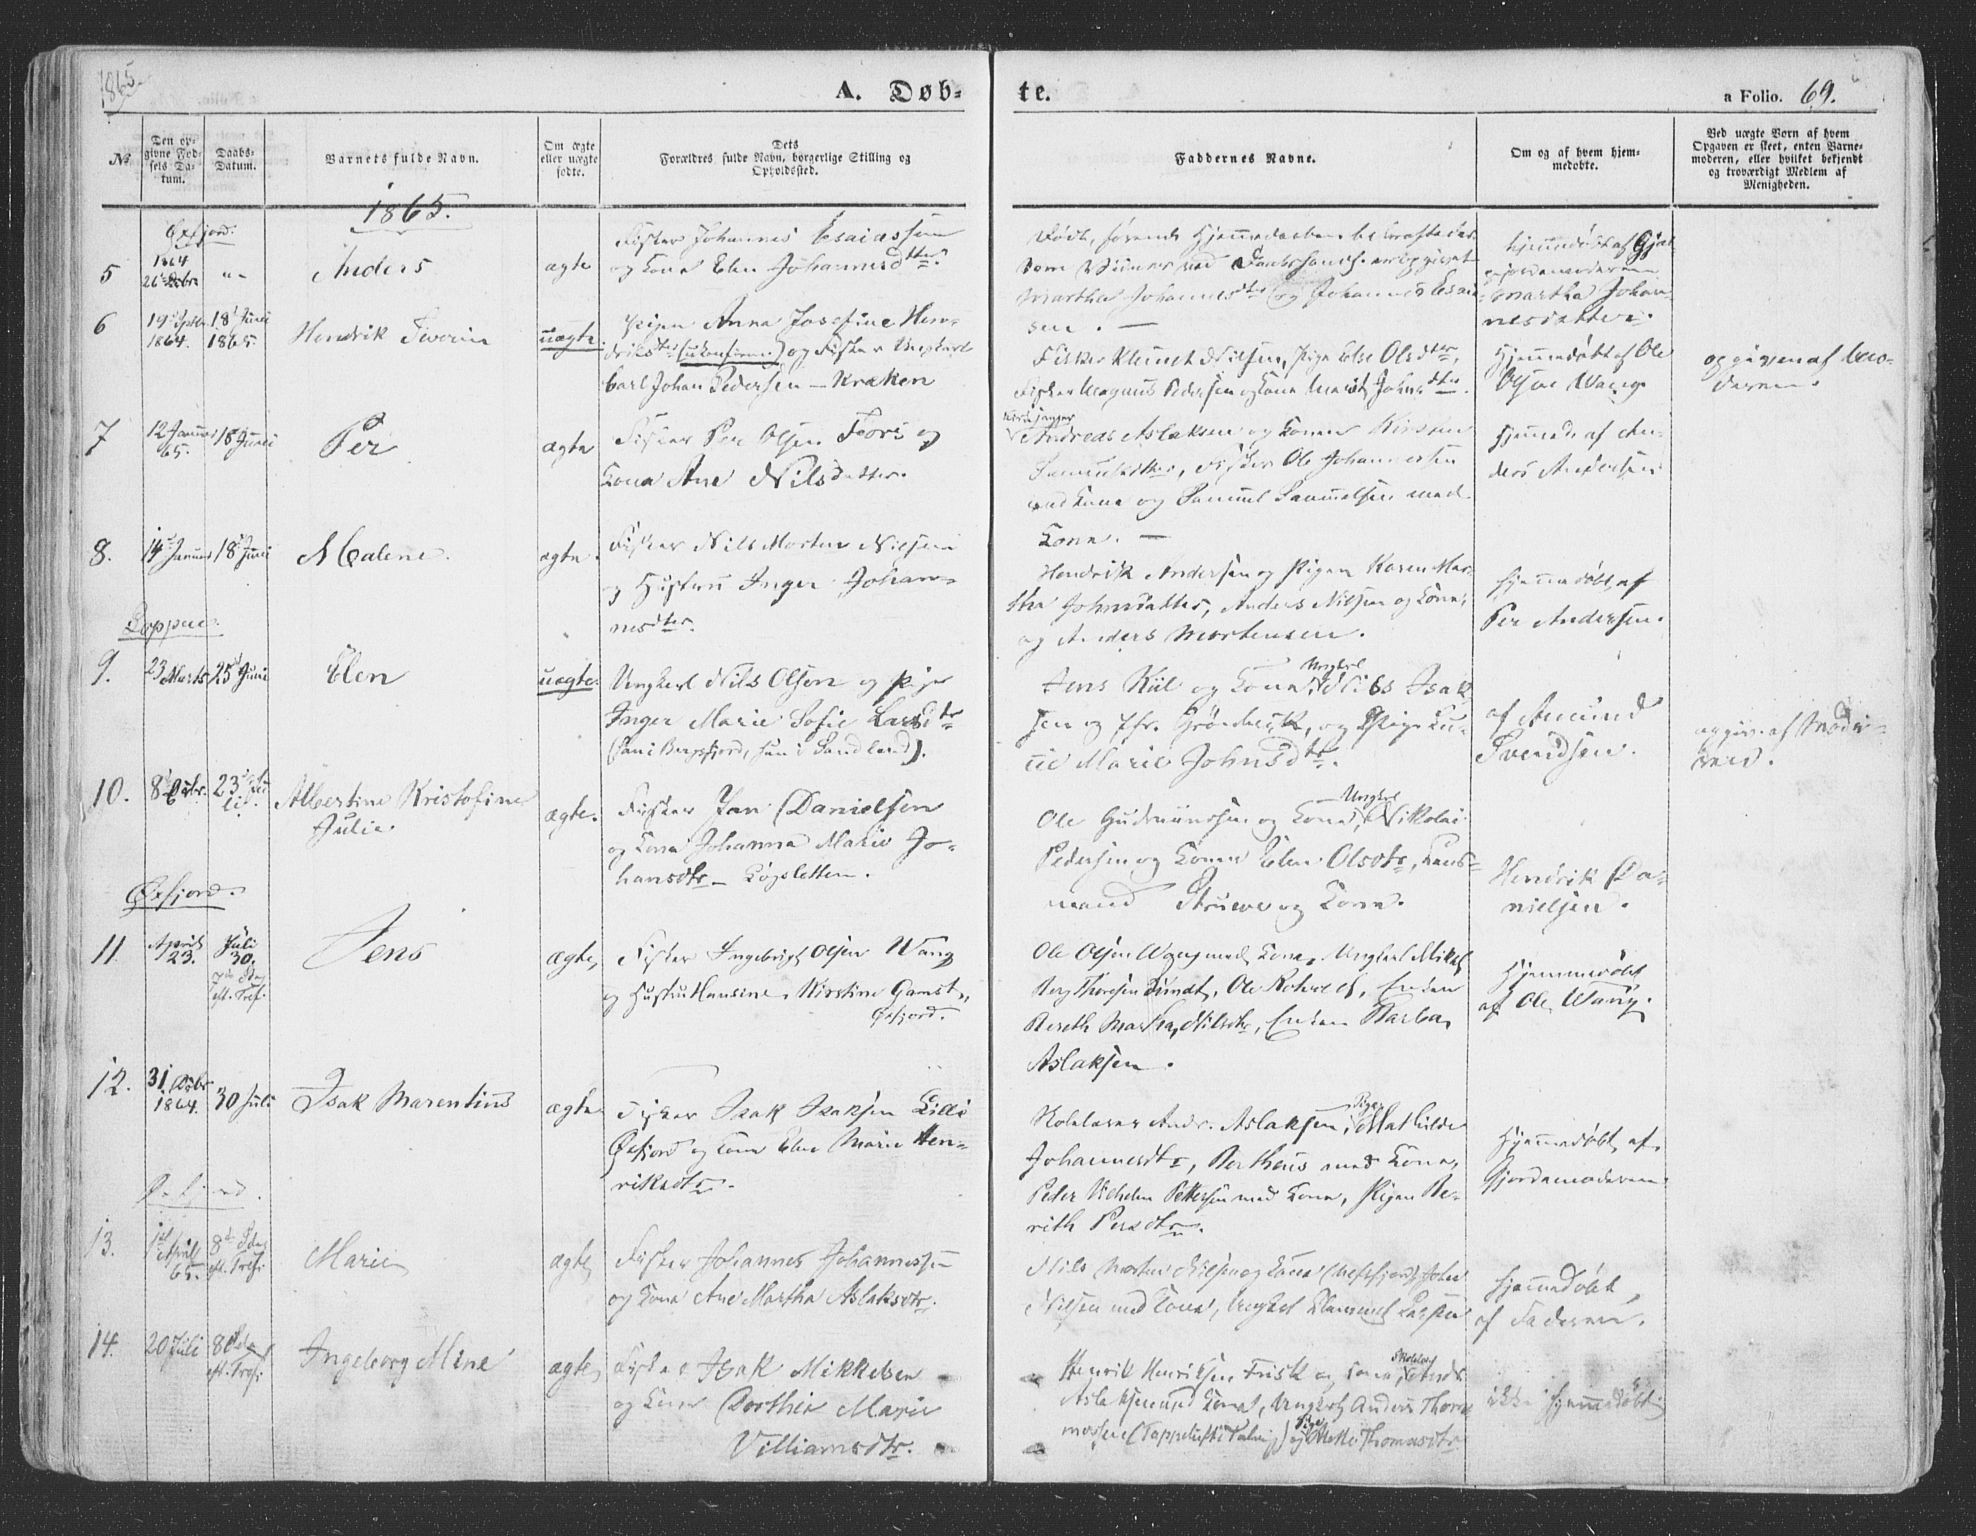 1865.
A. Døb-
te.
a Folio. 69.
No
Den op-
givne Fød-
sels Da-
tum.
Daabs-
Datum.
Barnets fulde Navn.
Om ægte
eller uægte
fødte.
Dets
Forældres fulde Navn, borgerlige Stilling og
Opholdssted.
Faddernes Navne.
Om og af hvem hjem-
medøbte.
Ved uægte Børn af hvem
Opgaven er skeet, enten Barne-
moderen, eller hvilket bekjendt
og troværdigt Medlem af
Menigheden.
1865.
Øxfjord.
5
1864
26 Debr
"-
Anders
ægte
Fisker Johannes Esaiassen
og Kona Elen Johannesdtr.
Født,
Martha Johannesdtr og Johannes Esaia-
sen. —
hjemmedøbt af Gjor-
jordemoderen
Martha Johan-
nesdatter.
6
19 Septbr
1864.
18 Juni
1865.
Hendrik Severin
uægte.
Pigen Anna Josefine Hen-
driksdtr (ukonfirm.) og Fisker Ungkarl
Carl Johan Pedersen — Kraken
Fisker Klemet Nilsen, Pige Else Olsdtr,
Fisker Magnus Pedersen og Kona Marit Johnsdtr.
Hjemmedøbt af Ole
Olsen Wang.
opgiven af Mo-
deren.
7
12 Januar
65.
18 Juni
Per
ægte
Fisker Per Olsen Fors og
Kona Ane Nilsdatter.
Andreas Aslaksen og Konen Kirsten
Samuelsdtter, Fisker Ole Johannessen
med Kona og Samuel Samuelsen med
Kona. —
Hjemmed. af An-
ders Andersen
8.
14 Januar
18 Juni
Malene.
ægte.
Fisker Nils Morten Nilsen
og Hustru Inger Johan-
nesdter.
Hendrik Andersen og Pigen Karen Mar-
tha Johnsdatter, Anders Nilsen og Kona,
og Anders Mortensen.
Hjemmedøbt af
Per Andersen.
Loppen.
9.
23 Marts
25 Juni
Elen
uægte.
Ungkarl Nils Olsen og Pige
Inger Marie Sofie Larsdtr
(han i Bergsfjord, hun i Sandland).
Jens Kiil og Kona, Ungkarl Nils Isak
sen og Jfr. Grønbeck, og Pige Lu-
cie Marie Johnsdtr.
af Amund
Svendsen.
opgiv. af Mode-
ren.
10.
8 Octbr.
23 Ju
li.
Albertine Kristofine
Julie.
ægte.
Fisker Jan Danielsen
og Kona Johanna Marie Jo-
hansdtr — Løgsletten.
Ole Gudmundsen og Kona, Ungkrl Nikolai
Pedersen og Konen Elen Olsdtr, Hans-
mand Struwe og Kona.
Hendrik Da-
nielsen.
Øxfjord.
11
April
23.
Juli
30.
7de Sdag
eft. Tref.
Jens
ægte,
Fisker Ingebrigt Olsen Wang
og Hustru Hansine Kirstine Gamst,
Øxfjord.
Ole Olsen Wang med Kona, Ungkarl Mikal
Berg Thoresen Lundt, Ole Rotvold, Enken
Bereth Martha Nilsdtr, Enken Barba
Aslaksen.
Hjemmedøbt
af Ole Wang.
12.
31 Debr
1864.
30 Juli
Isak Marentius
ægte
Fisker Isak Isaksen Lille
Øxfjord og Kona Elen Marie Hen-
riksdtr.
Kolelærer Andr. Aslaksen, Pigen Mathilde
Johannesdtr, Bertheus med Kona,
Peder Vilhelm Pettersen med Kona, Pigen Be-
rith Persdtr.
Hjemmedøbt af
Gjordemoderen.
Øxfjord.
13.
1 April
65.
8d Sdag
eft. Tref.
Marie
ægte
Fisker Johannes Johannessen
og Kona Ane Martha Aslaksdtr.
Nils Morten Nilsen og Kona John
Nilsen med Kona, Ungkarl Klemmet Larsen
Hjemmedøbt
af Faderen.
14.
20 Juli
8 Sdag
eft. Tref.
Ingeborg Mine
ægte
Fisker Isak Mikkelsen
og Kona Dorthea Marie
Villiamsdtr.
Henrik Henriksen Frisk og Kona, Andr.
Aslaksen med Kona, Ungkarl Anders Thom
mesen og Pige Mette Thomasdtr
ikke hjemmedøbt